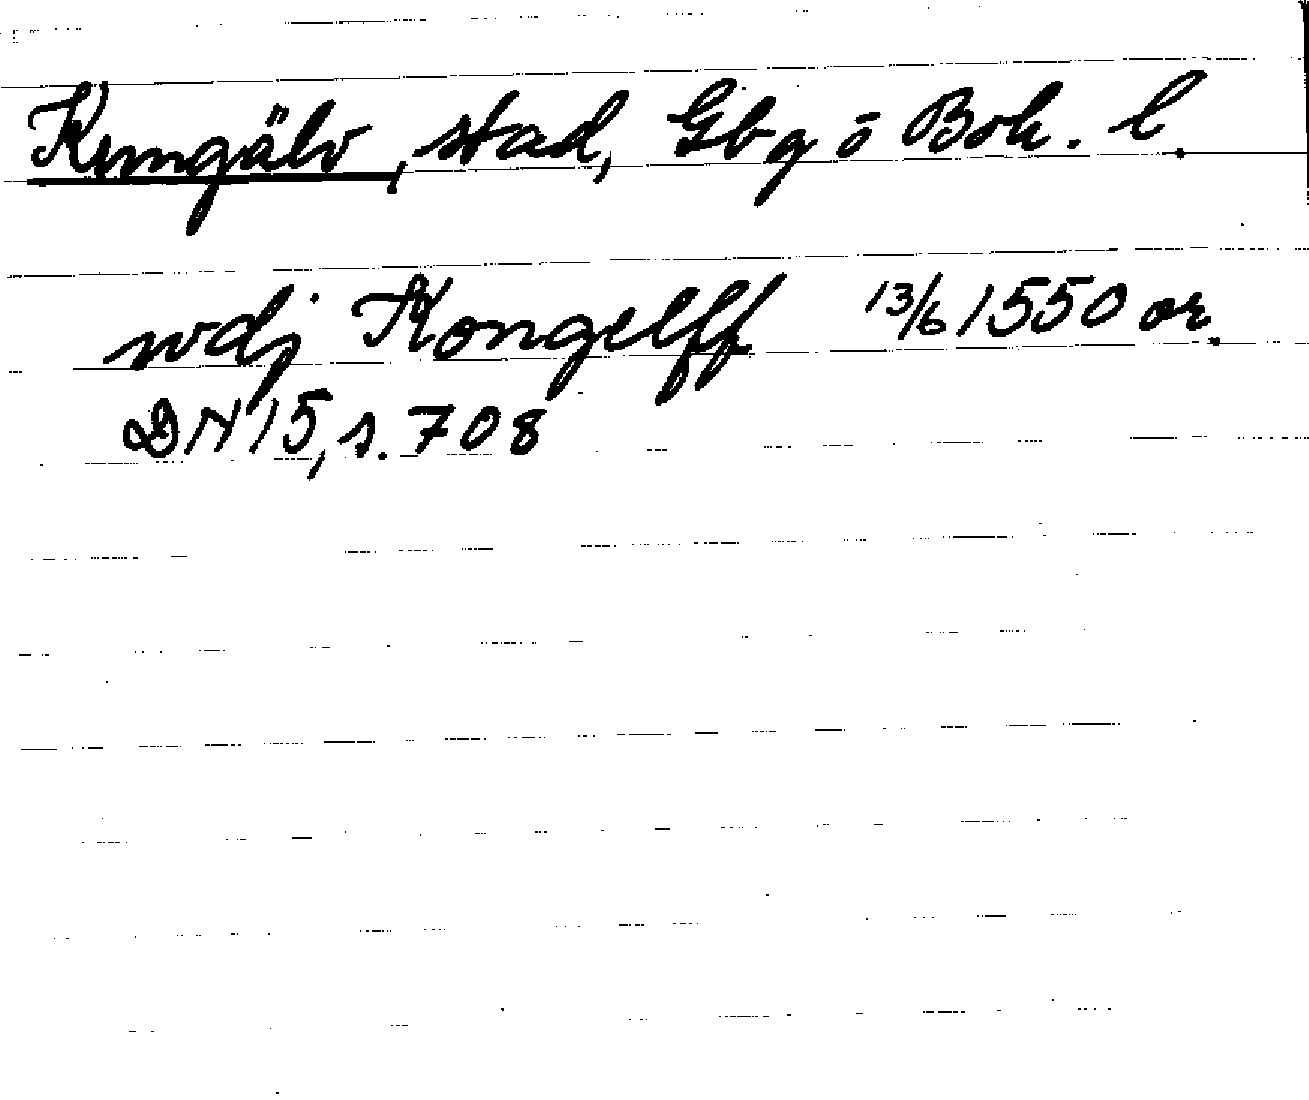 Kungälv, stad, Gbg o Boh. l.
wdj Kongelff 13/6 1550 or.
DN 15, s. 708